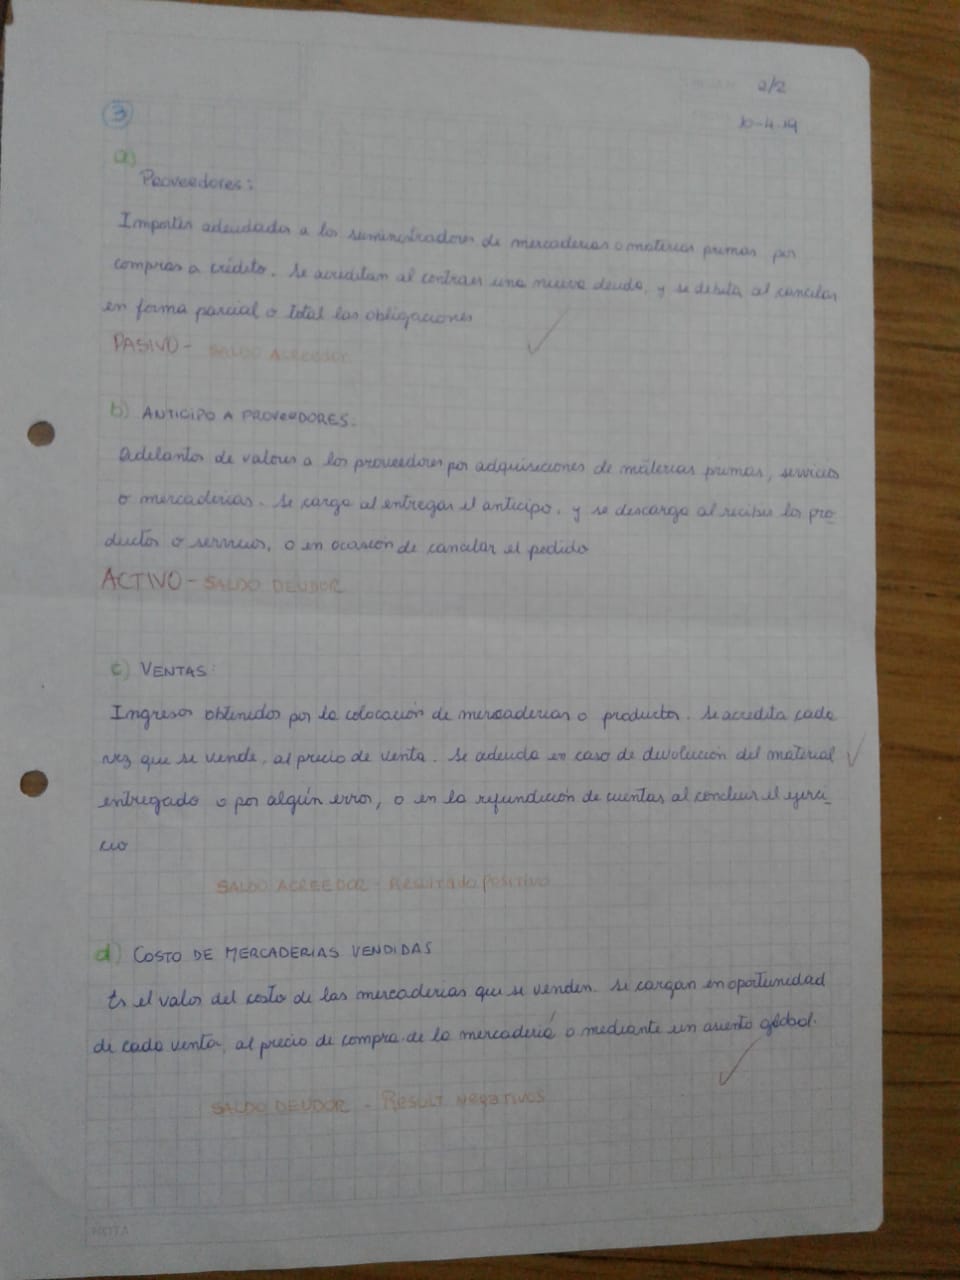 2/2
10-4-19
3
a)
Proveedores:
Importes adeudados a los suministradores de mercaderias o materias primas por
compras a crédito. Se acreditan al contraer una nueva deuda, y se debita al cancelar
en forma parcial o total las obligaciones
PASIVO - SALDO Acreedor
b) ANTICIPO A PROVEEDORES.
Adelantos de valores a los proveedores por adquisiciones de materias primas, servicios
o mercaderias. Se carga al entregar el anticipo, y se descarga al recibir los pro-
ductos o servicios, o en ocasión de cancelar el pedido
ACTIVO - SALDO DEUDOR
c) VENTAS:
Ingresos obtenidos por la colocación de mercaderias o productos. Se acredita cada
vez que se vende, al precio de venta. Se adeuda en caso de devolución del material
entregado o por algún error, o en la refundición de cuentas al concluir el ejerci-
cio
SALDO ACREEDOR - Resultado Positivo
d) COSTO DE MERCADERIAS VENDIDAS
Es el valor del costo de las mercaderias que se venden. Se cargan en oportunidad
de cada venta, al precio de compra de la mercaderia o mediante un asiento global.
SALDO DEUDOR - Result Negativos
NOTA